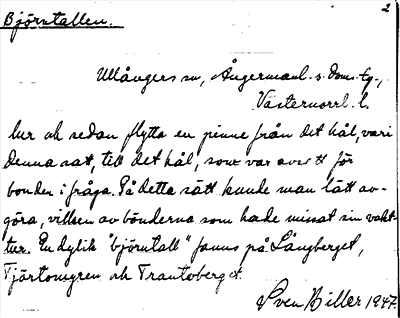 Björntallen.
2
Ullångers sn, Ångermanl. s. doms. tg.,
Västernorrl. l.
lur och sedan flytta en pinne från det hål, vari
denna satt, till det hål, som var avsett för
bonden i fråga. På detta sätt kunde man lätt av-
göra, vilken av bönderna som hade missat sin vakt-
tur. En dylik "björntall" fanns på Långberget,
och Trantoberget.
Sven Hiller 1947.